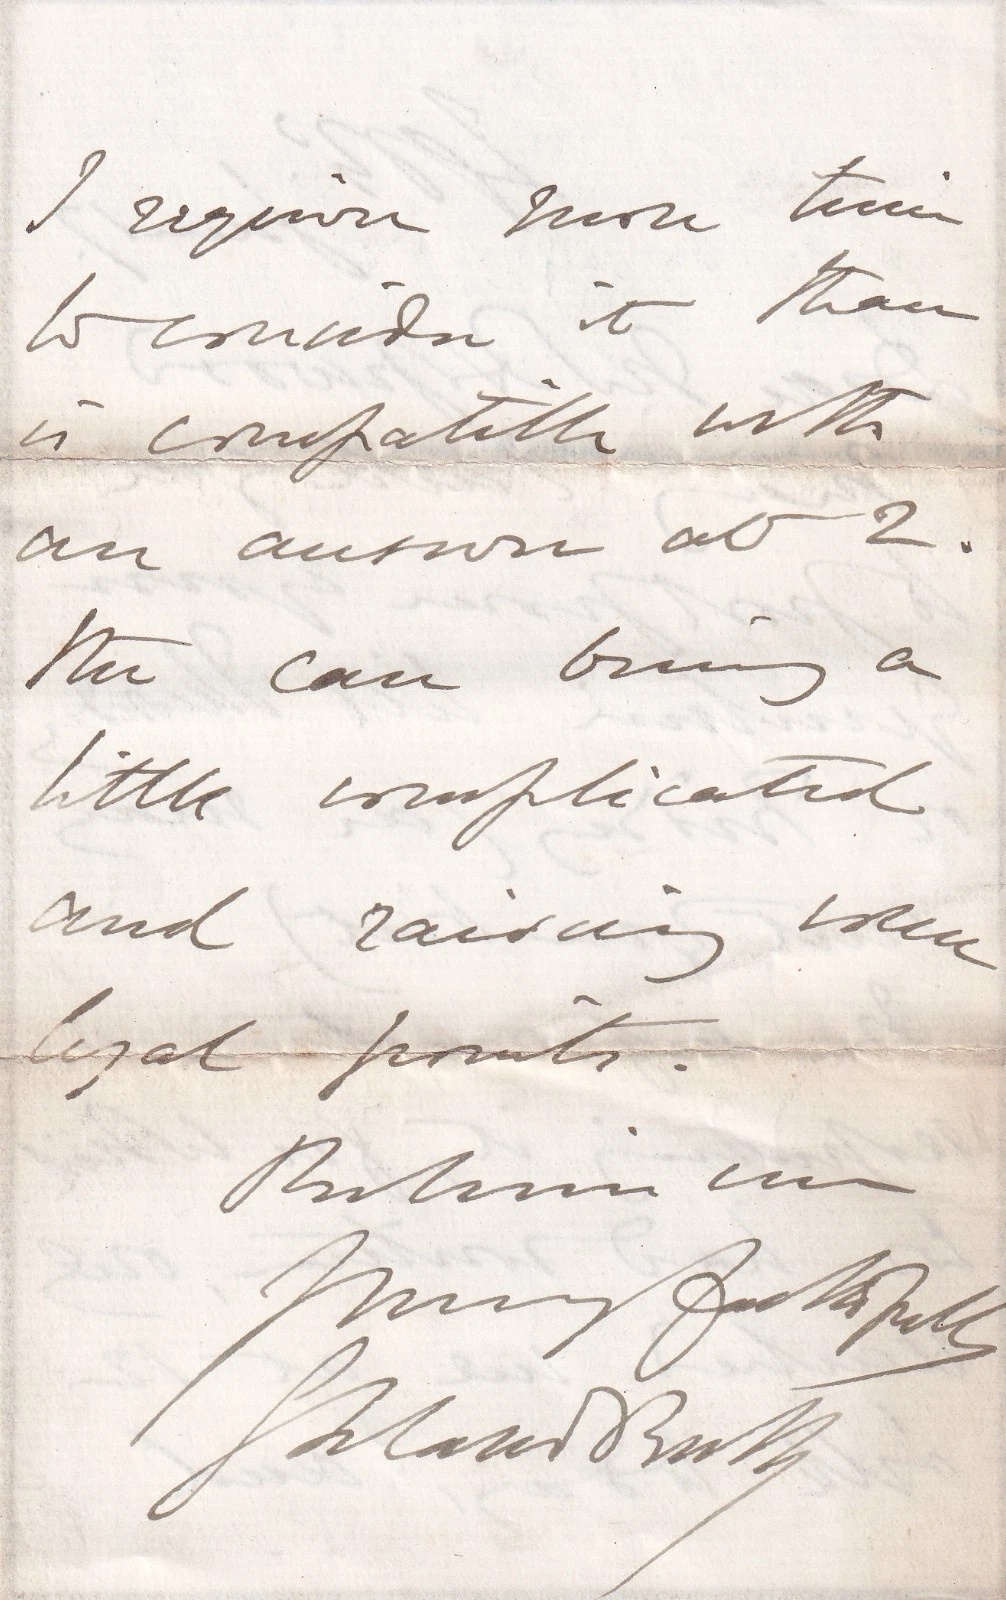 I require more time
to consider it than
is compatible with
an answer at 2.
The case being a
little complicated
and raising some
legal points.
Believe me
yours faithfully